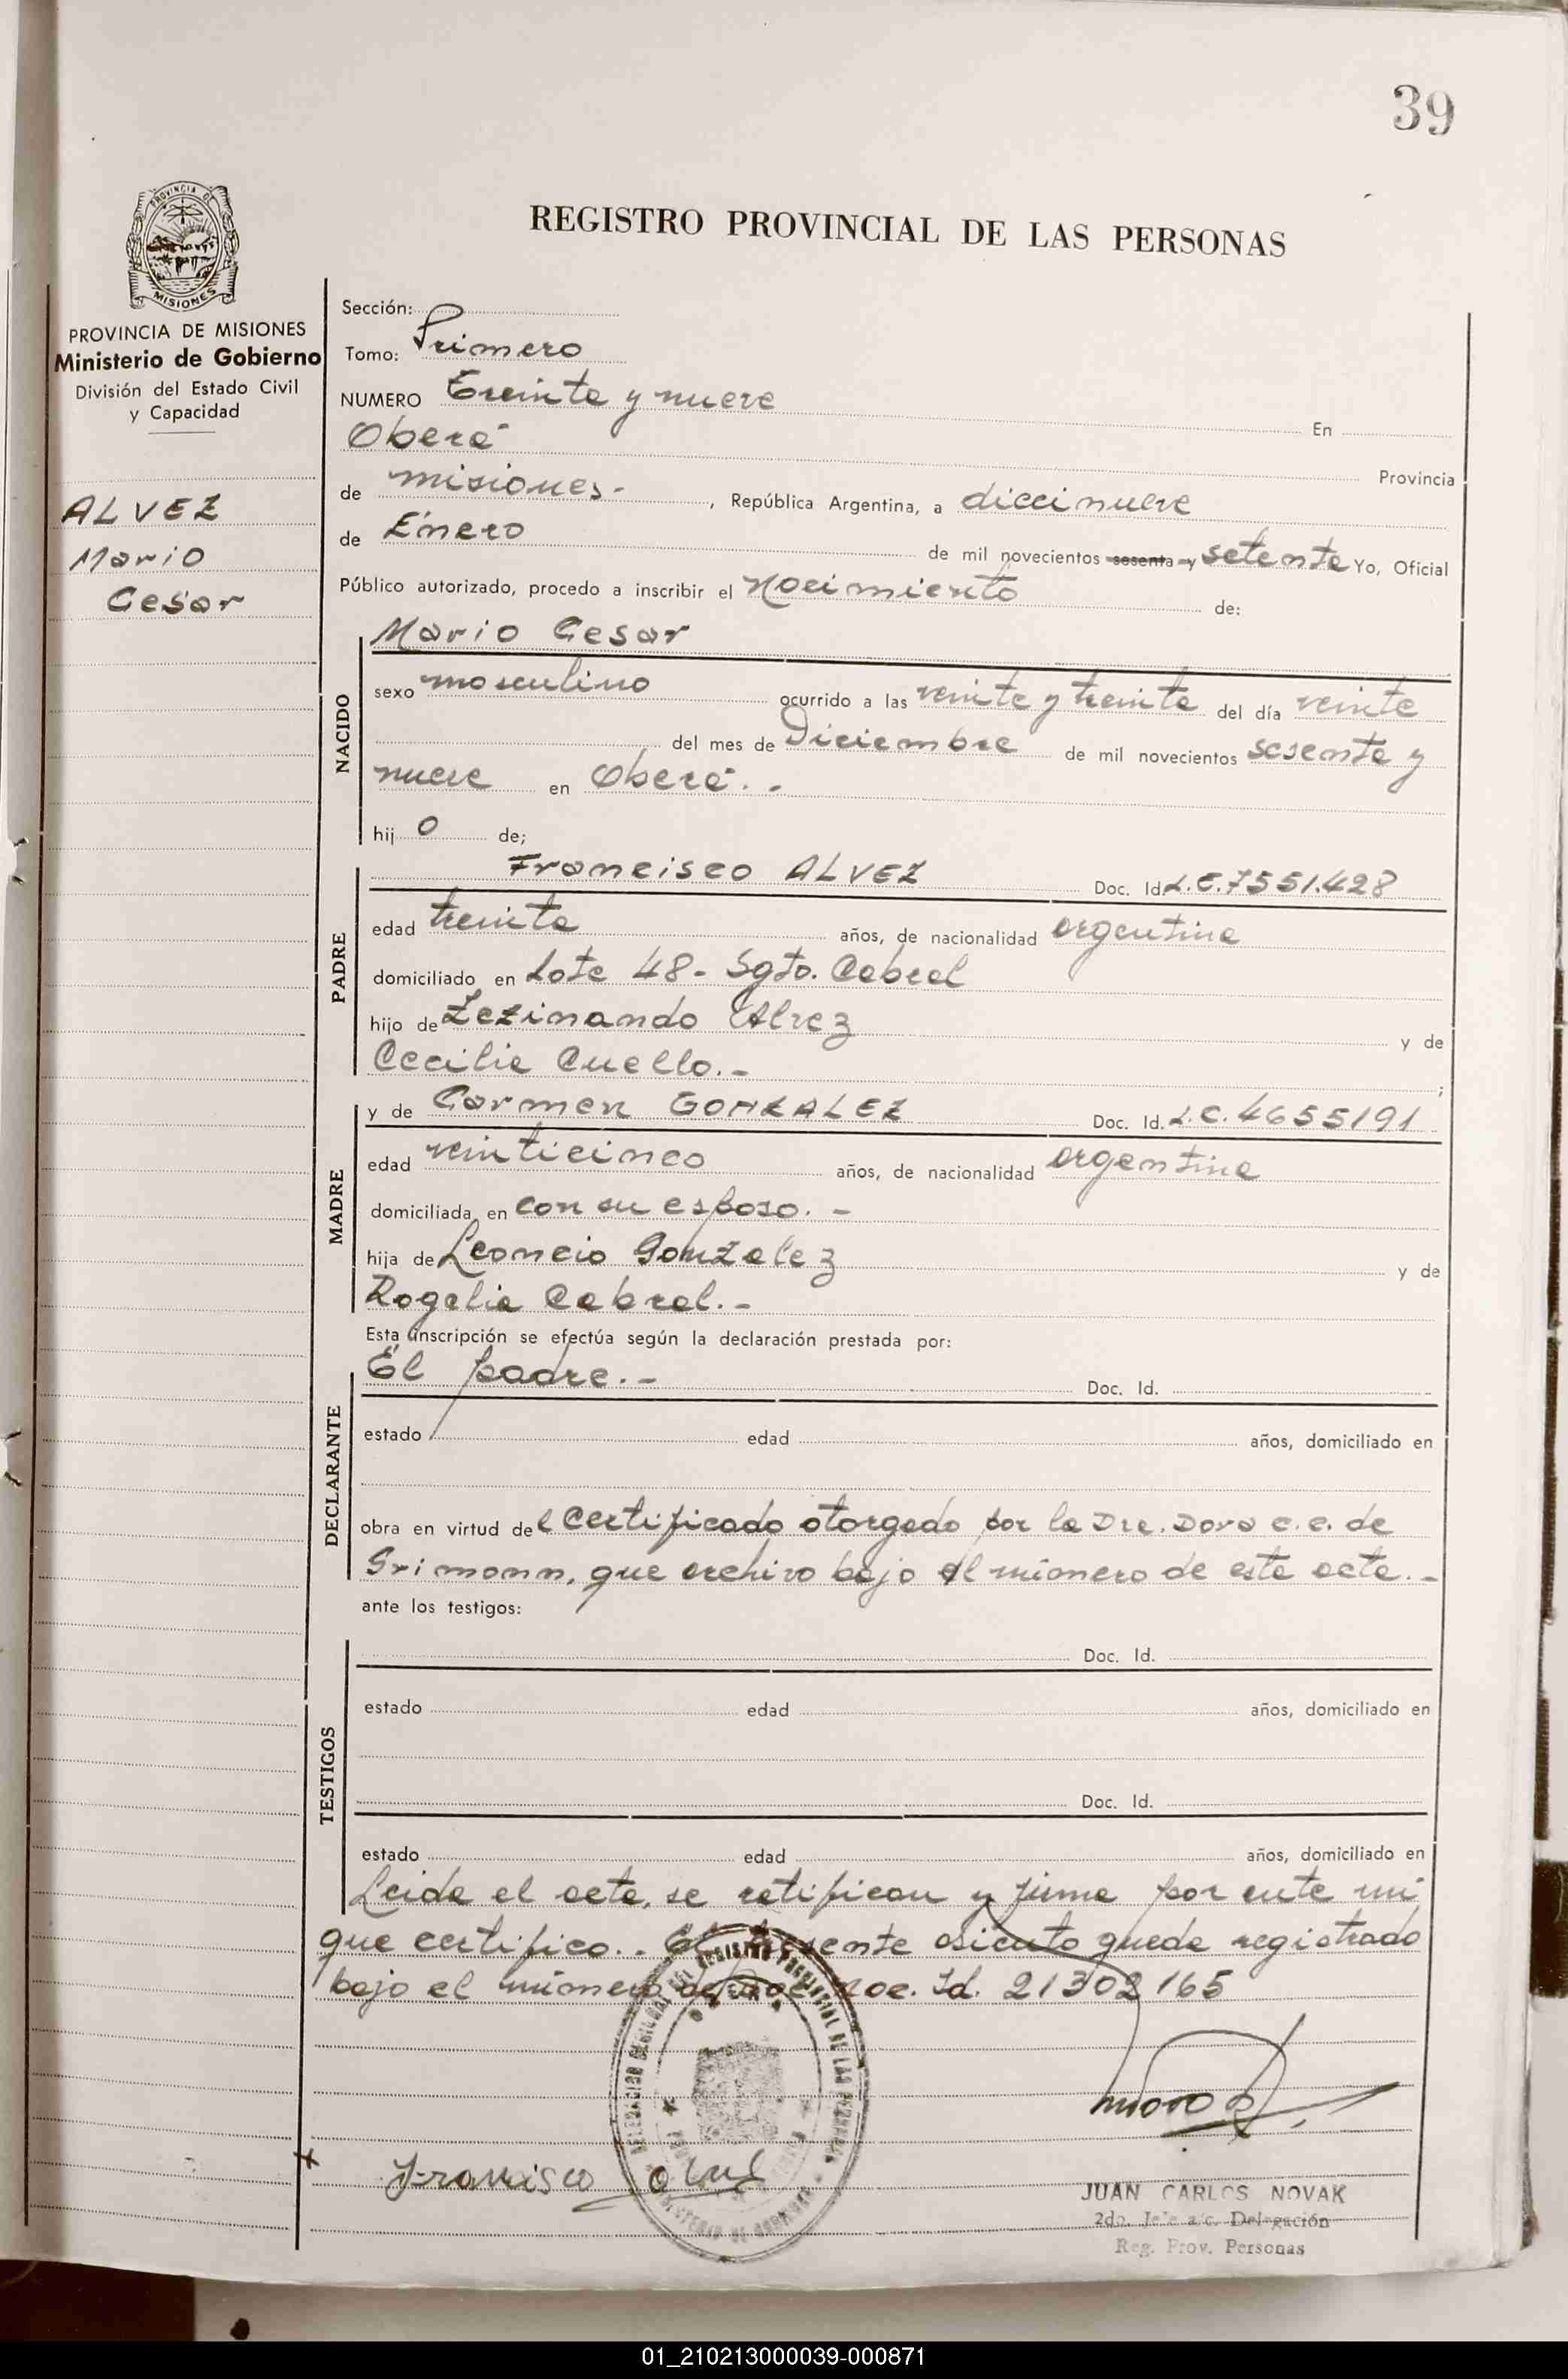 39
PROVINCIA DE
MISIONES
PROVINCIA DE MISIONES
Ministerio de Gobierno
División del Estado Civil
y Capacidad
ALVEZ
Mario
Cesar
REGISTRO PROVINCIAL DE LAS PERSONAS
Sección:
Tomo: Primero
NUMERO Treinta y nueve En
Oberá Provincia
de misiones.- , República Argentina, a diecinueve
de Enero de mil novecientos sesenta y setenta Yo, Oficial
Público autorizado, procedo a inscribir el Nacimiento de:
Mario Cesar
NACIDO
sexo masculino ocurrido a las veinte y treinta del día veinte
del mes de Diciembre de mil novecientos sesenta y
nueve en Oberá. -
hij o de;
PADRE
Francisco ALVEZ Doc. Id. L.E.7551.428
edad treinta años, de nacionalidad argentina
domiciliado en Lote 48- Sgto. Cabral
hijo de Zezinando Alvez y de
Cecilia Cuello.- ;
MADRE
y de Carmen GONZALEZ Doc. Id. L.C. 4655191
edad veinticinco años, de nacionalidad argentina
domiciliada en con su esposo. -
hija de Leoncio Gonzalez y de
Rogelia Cabral.-
Esta inscripción se efectúa según la declaración prestada por:
DECLARANTE
El padre.- Doc. Id.
estado edad años, domiciliado en
obra en virtud de l certificado otorgado por la Dra. Dora c.e. de
Grimonn, que archivo bajo el número de esta acta.-
ante los testigos:
TESTIGOS
Doc. Id.
estado edad años, domiciliado en
Doc. Id.
estado edad años, domiciliado en
Leida el acta, se ratifican y firma por ante mi
que certifico.. El presente asiento queda registrado
bajo el número de Doc. Id. 21302165
Francisco
JUAN CARLOS NOVAK
2do. Jefe a/c. Delegación
Reg. Prov. Personas
01_210213000039-000871